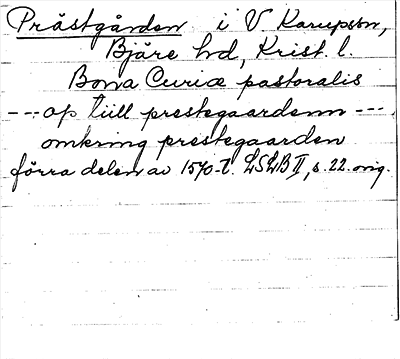 Prästgården i V Karupssn,
Bjäre hd, Krist. l.
Bona Curiæ pastoralis
--- op tiill prestegaardenn ---
omkring prestegaarden
förra delen av 1570-t. LSLB II, s. 22. orig.